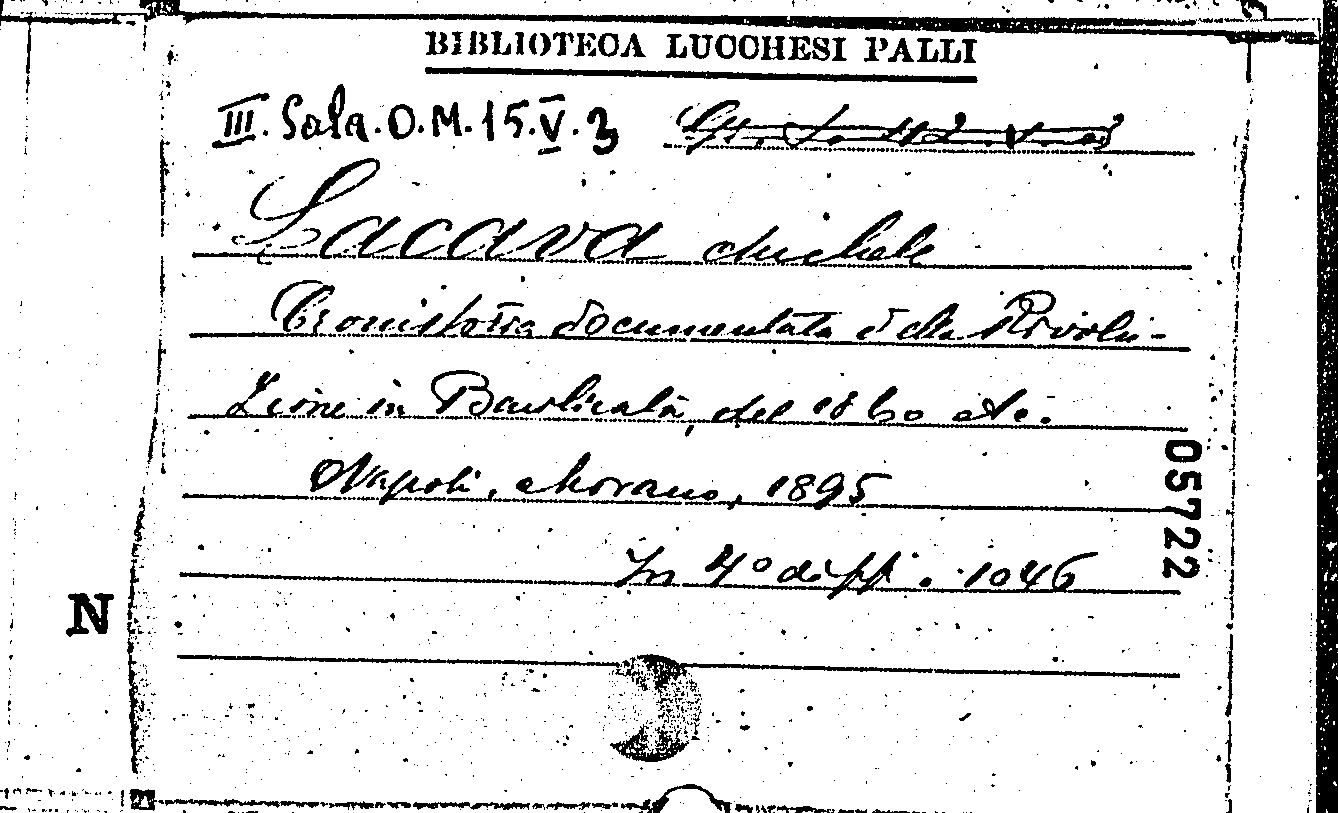 BIBLIOTECA LUCCHESI PALLI
III. Sala. O. M. 15. V. 3
Lacava Michele
Cronistoria documentata della Rivolu-
zione in Basilicata, del 1860 etc.
Napoli, Morano, 1895
In 4° di pp. 1046
05722
N